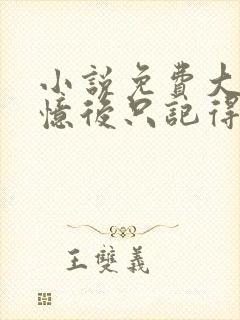 小説免費大
憶後只記得
王雙義